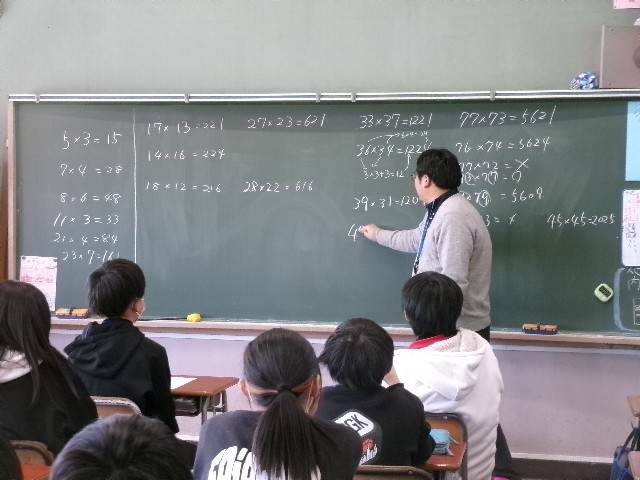 5×3=15
7×4=28
8×6=48
11×3=33
21×4=84
17×13=221
14×16=224
18×12=216
27×23=621
28×22=616
33×37=1221
36×34=1224
3×3+3=12
39×31=120
4
77×73=5621
76×74=5624
=5609
45×45=2025